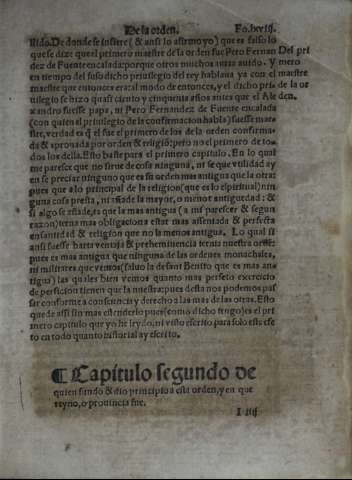 De la orden. Fo.lxviij.
uido. De donde se infiere ( & ansi lo afirmo yo) que es falso lo
que se dize que el primero maestre de la orden fue Pero Fernan
dez de Fuente encalada: porque otros muchos auia auido. Y
en tiempo del suso dicho priuilegio del rey hablaua ya con el
maestre que entonces era: al modo de entonces, y el dicho pri
uilegio se hizo quasi ciento y cinquenta años antes que el Ale
xandro fuesse papa, ni Pero Fernandez de Fuente encalada
(con quien el priuilegio de la confirmacion habla) fuesse maes
tre, verdad es q̃ el fue el primero de los de la orden confirma
da & aprouada por orden & religiõ: pero no el primero de to
dos los della. Esto baste para el primero capitulo. En lo qual
me paresce que no sirue de cosa ninguna, ni se que vtilidad ay
en se preciar ninguno que es su orden mas antigua que la otra:
pues que a lo principal de la religion (que es lo espiritual) nin
guna cosa presta, ni añade la mayor, o menor antiguedad: &
si algo se añade, es que la mas antigua ( a mi parescer & segun
razon) terna mas obligacion a estar mas assentada & perfecta
en sanidad & religion que no la menos antigua. Lo qual si
ansi fuesse harta ventaja & preheminencia ternia nuestra ordẽ:
pues es mas antigua que ninguna de las ordenes monachales,
ni militares que vemos (saluo la de sant Benito que es mas an
tigua) las quales bien vemos quanto mas perfeto exercicio
de perficion tienen que la nuestra: pues desta nos podemos pas
sar conforme a consciencia y derecho a las mas de las otras. Esto
quede assi sin mas estenderlo pues (como dicho tengo) es el pri
mero capitulo que yo he leydo, ni visto escrito para solo este efe
to en todo quanto historial ay escrito.
Del pri
mero
maestre
de la or
den.
¶ Capitulo segundo de
quien fundo & dio principio a esta orden, y en que
reyno, o prouincia fue.
I iiij